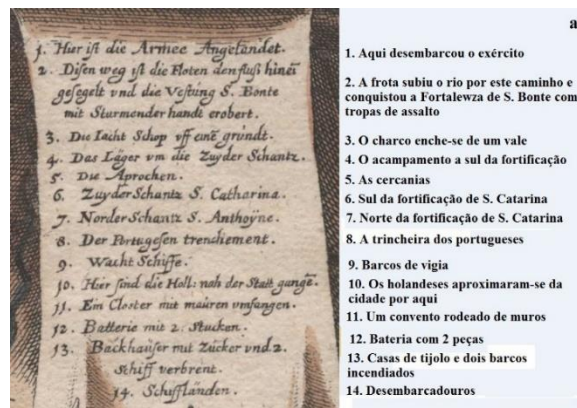 1. Hier ist die Armee Angelandet.
2. Disen weg ist die Floten den fluß hineĩ
gesegelt vnd die Vestung S. Bonte
mit Sturmenderhandt erobert.
3. Die Iacht Schop vff eine grundt.
4. Das Läger vm die Zuyder Schantz.
5. Die Aprochen.
6. Zuyder Schantz S. Catharina.
7. Norder Schantz S. Anthoÿne.
8. Der Portugesen trenchement.
9. Wacht Schiffe.
10. Hier sind die Holl: nah der Statt gangẽ.
11. Ein Closter mit mauren vmfangen.
12. Batterie mit 2. Stucken.
13. Backhaüser mit Zücker vnd 2.
Schiff verbrent.
14. Schifflanden.
a
1. Aqui desembarcou o exército
2. A frota subiu o rio por este caminho e
conquistou a Fortalewza de S. Bonte com
tropas de assalto
3. O charco enche-se de um vale
4. O acampamento a sul da fortificação
5. As cercanias
6. Sul da fortificação de S. Catarina
7. Norte da fortificação de S. Catarina
8. A trincheira dos portugueses
9. Barcos de vigia
10. Os holandeses aproximaram-se da
cidade por aqui
11. Um convento rodeado de muros
12. Bateria com 2 peças
13. Casas de tijolo e dois barcos
incendiados
14. Desembarcadouros